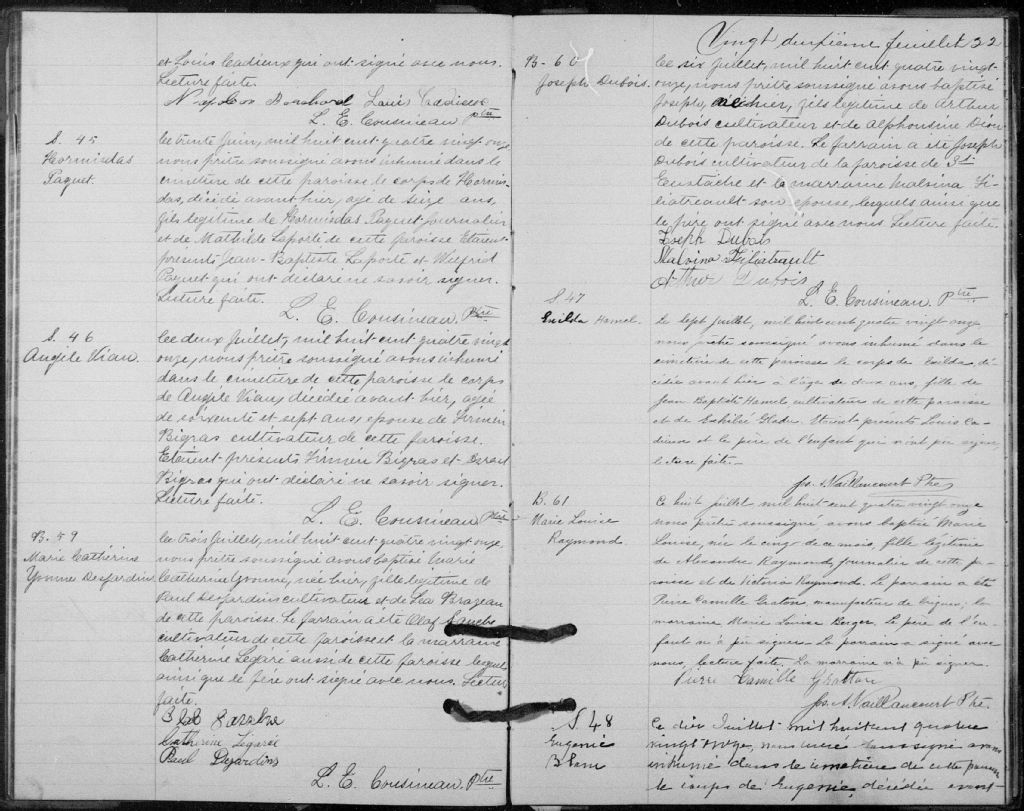 et Louis Cadieux qui ont signé avec nous.
Lecture faite.
Napoléon Bouchard Louis Cadieux
L. E. Cousineau Ptre
S. 45
Hormisdas
Paquet.
Le trente Juin, mil huit cent quatre vingt onze
nous prêtre soussigné avons inhumé dans le
cimetière de cette paroisse le corps de Hormis-
das, décédé avant hier, agé de seize ans,
fils legitime de Hormisdas Paquet journalier
et de Mathilde Laporte de cette paroisse Etaient
presents Jean-Baptiste Laporte et Wilfrid
Paquet qui ont déclaré ne savoir signer.
Lecture faite.
L. E. Cousineau. Ptre
S. 46
Angèle Vian.
Le deux Juillet, mil huit cent quatre vingt
onze, nous prêtre soussigné avons inhumé
dans le cimetière de cette paroisse le corps
de Angèle Vian, décédée avant hier, agée
de soixante et sept ans, epouse de Firmin
Bigras cultivateur de cette paroisse.
Etaient presents Firmin Bigras et
Bigras qui ont declaré ne savoir signer.
Lecture faite.
L. E. Cousineau Ptre
B. 59
Marie Catherine
Yvonne Desjardins
Le trois Juillet, mil huit cent quatre vingt onze,
nous prêtre soussigné avons baptisé Marie
Catherine Yvonne, née hier, fille legitime de
Paul Desjardins cultivateur et de Léa Brazeau
de cette paroisse. Le parrain a été Olaf
cultivateur de cette paroisse et la marraine
Catherine Legaré aussi de cette paroisse lesquels
ainsi que le père ont signé avec nous. Lecture
faite.
Catherine Legaré
Paul Dejardins
L. E. Cousineau Ptre
Vingt deuxième feuillet 22
B - 60
Joseph Dubois.
Le six Juillet, mil huit cent quatre vingt-
onze, nous prêtre soussigné avons baptisé
Joseph, né hier, fils legitime de Arthur
Dubois cultivateur et de Alphonsine Dion
de cette paroisse. Le parrain a été Joseph
Dubois cultivateur de la paroisse de St
Eustache et la marraine Malvina Fi-
liatreault son epouse, lesquels ainsi que
le père ont signé avec nous Lecture faite.
Joseph Dubois
Malvina Filiatreault
Arthur Dubois
L. E. Cousineau Ptre
S 47
Exilda Hamel.
Le sept Juillet, mil huit cent quatre vingt onze
nous prêtre soussigné avons inhumé dans le
cimetière de cette paroisse le corps de Exilda, dé-
cédée avant hier à l'âge de deux ans, fille de
Jean Baptiste Hamel cultivateur de cette paroisse
et de. Etaient présents Louis Ca-
dieux et le père de l'enfant qui n'ont pu signer,
lecture faite.-
Jos. A. Vaillancourt Ptre
B. 61
Marie Louise
Raymond.
Ce huit juillet mil huit cent quatre vingt onze
nous prêtre soussigné avons baptisé Marie
Louise, née le cinq de ce mois, fille légitime
de Alexandre Raymond, journalier de cette pa-
roisse et de Victoria Raymond. Le parrain a été
Pierre Camille Gratton, manufacteur de briques; la
marraine Marie Louise Berger. Le père de l'en-
fant n'a pu signer. Le parrain a signé avec
nous, lecture faite. La marraine n'a pu signer.
Pierre Camille Gratton
Jos. A. Vaillancourt Ptre.
S 48
Eugenie
Ce dix Juillet mil huit cent quatre
vingt onze, nous soussigné avons
inhumé dans le cimetière de cette paroisse
le corps de Eugenie, décédée avant-